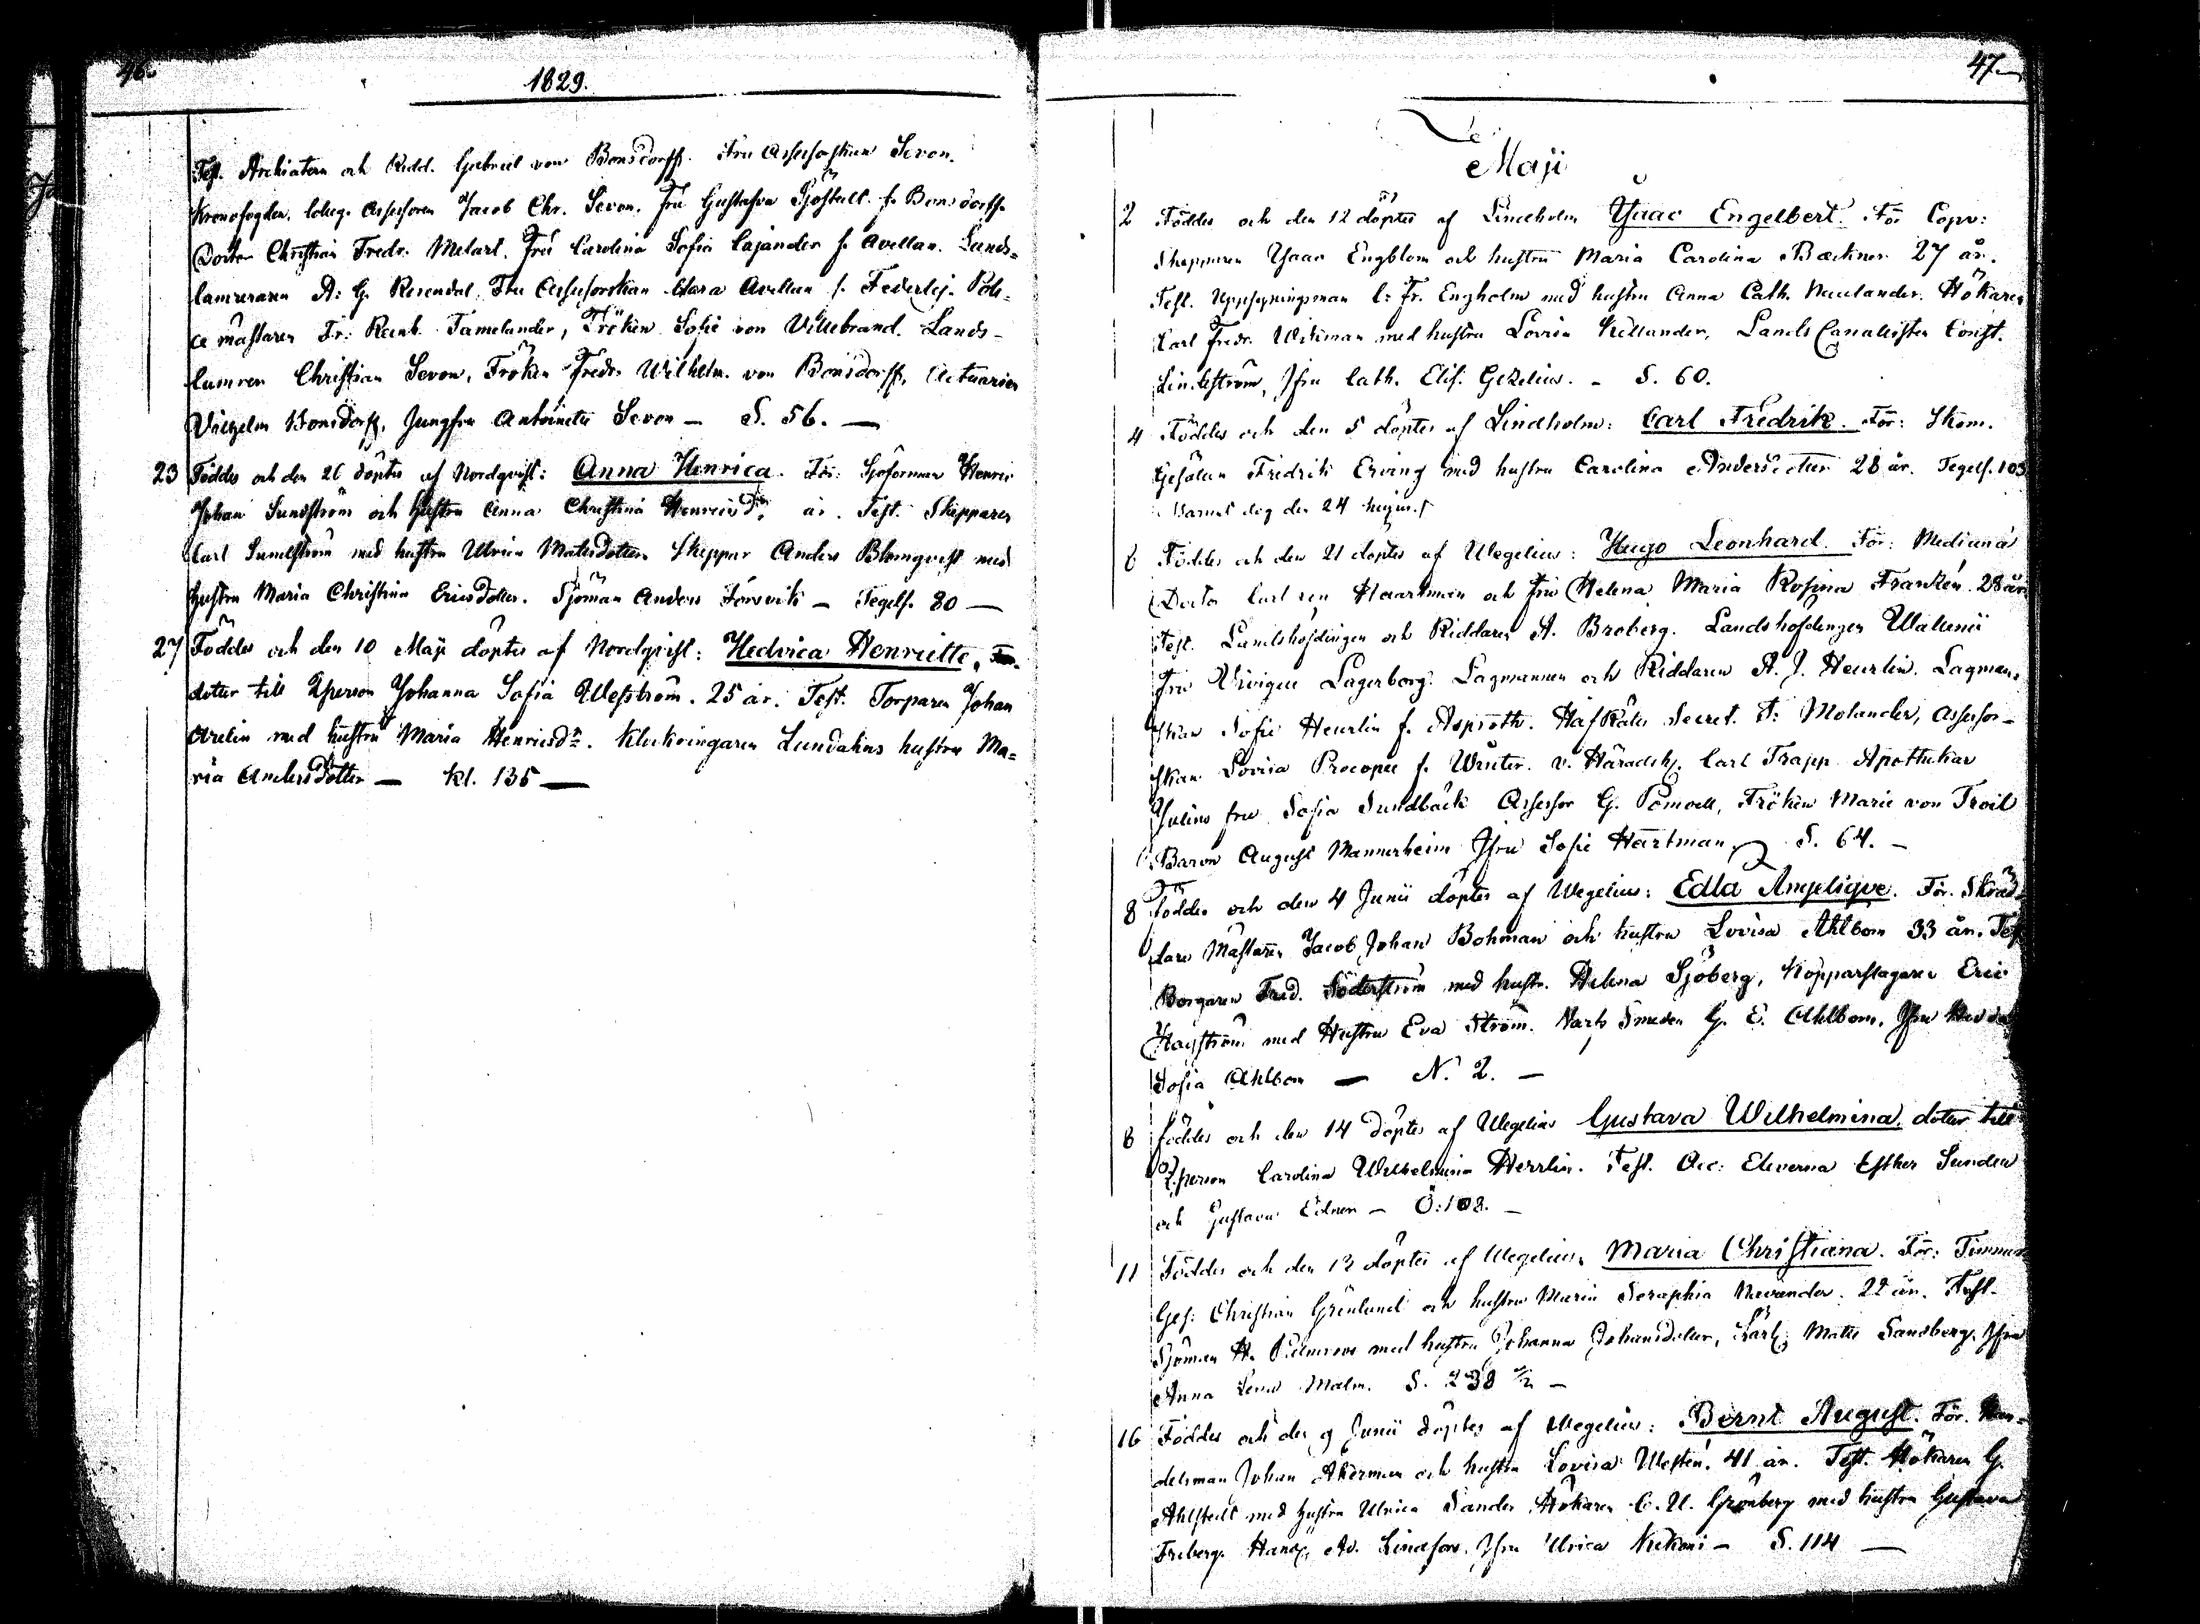 46.
1829.
Test. Archiatern och Ridd. Gabriel von Bonsdorff. Fru Assessorskan Sevon.
Kronofogden. Assessoren Jacob Chr. Sevon. Fru Gustafva f. Bonsdorff.
Doctor Christian Fredr. Fru Carolina Sofia Cajander f. Avellan. Lands-
A: G. Rosendal, Fru Assessorskan Clara Avellan f. Federley. Poli-
ce mästaren Fr: Reinh. Tamelander, Fröken Sofie von Villebrand. Lands-
Christian Sevon, Fröken Fredr. Wilhelm. von Bonsdorff, Actuarien
Vilhelm Bonsdorff, Jungfru Antoinette Sevon – S. 56. —
23 Föddes och den 26 döptes af Nordqvist: Anna Henrica. För: Sjöforman Henric
Johan Sundström och hustru Anna Christina Henricsdr. år. Test. Skepparen
Carl Sundström med hustru Ulrica Matsdotter. Skeppar Anders Blomqvist med
hustru Maria Christina Ericsdotter. Sjöman Anders – Tegels. 80 —
27 Föddes och den 10 Maji döptes af Nordqvist: Hedvica Henriette,
dotter till Qperson Johanna Sofia Wefström. 25 år. Test. Torparen Johan
Arelin med hustru Maria Henricsdr. Klockringaren Lundahns hustru Ma-
ria Andersdotter — Kl. 135 —
47
Maji
2 Föddes och den 12 döptes af Lindholm Ysaac Engelbert. För Copv:
Skepparen Ysaac Engblom och hustru Maria Carolina Bæckner 27 år.
Test. Uppsyningsman C: Fr. Engholm med hustru Anna Cath. Hökaren
Carl Fredr. Wikman med hustru Lovisa Kellander, Lands Canallisten Const.
Lindström, Jfru Cath. Elis. Gezelius. – S. 60.
4 Föddes och den 5 döptes af Lindholm: Carl Fredrik. För: Skom.
Gesällen Fredrik Erving med hustru Carolina Andersdotter 28 år. Tegels. 103
Barnet dog den 24
6 Föddes och den 21 döptes af Wegelius: Hugo Leonhard. För: Medicinæ
Doctor Carl von Haartman och fru Helena Maria Rosina Franzén. 28 år
Test. Landshöfdingen och Riddaren A. Broberg. Landshöfdingen Wallenii
fru Vivique Lagerborg. Lagmannen och Riddaren A. J. Heurlin. Lagmans-
skan Sofie Heurlin f. Asproth. HofRätts Secret. A: Molander, Assessor-
skan Lovisa Procopé f. Winter. v. Häradsh. Carl Trapp. Apothekar
Julins fru Sofia Sundbäck Assessor G. Fröken Marie von Troil
Baron August Mannerheim Jfru Sofie Hartman, S. 64. –
8 Föddes och den 4 Junii döptes af Wegelius: Edla Angelique. För. Skräd-
dare Mästaren Jacob Johan Bohman och hustru Lovisa Ahlbom 33 år. Test
Borgaren Fred. Söderström med hustr. Helena Sjöberg, Kopparslagaren Eric
Hagström med Hustru Eva Ström. Smeden G. E. Ahlbom, Jfru
Sofia Ahlbom — N. 2. –
8 föddes och den 14 döptes af Wegelius Gustava Wilhelmina, dotter till
Qperson Carolina Wilhelmina Herrlin. Test. Acc: Eleverna Esther Sunden
och Gustava – Ö: 108. –
11 Föddes och den 13 döptes af Wegelius, Maria Christiana. För: Timmer
Ges: Christian Grönlund och hustru Maria Seraphia Nevander. 22 år. Test.
Sjöman H. med hustru Johanna Johansdotter, Matts Sandberg. Jfru
Anna Lena Malm. S. 238 ½ –
16 Föddes och den 9 Junii döptes af Wegelius: Bernt August. För. Han-
delsman Johan Åkerman och hustru Lovisa Westén. 41 år. Test. Hökaren G.
Ahlstedt med hustru Ulrica Sander Hökaren C. U. Grönberg med hustru Gustava
Friberg. Ad. Lindfors. Jfru Ulrica – S. 114 —